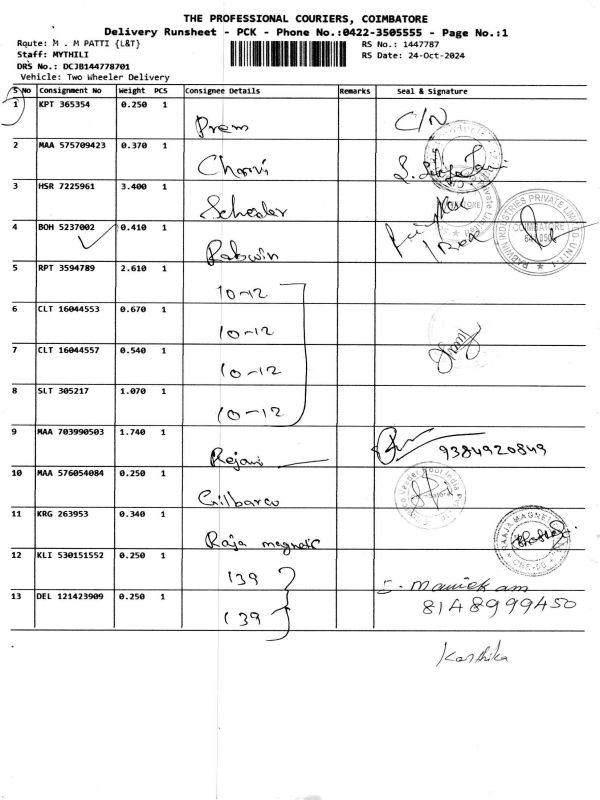 THE PROFESSIONAL COURIERS, COIMBATORE
Delivery Runsheet - PCK - Phone No.:0422-3505555 - Page No.:1
Route: M . M PATTI {L&T}
RS No.: 1447787
Staff: MYTHILI
RS Date: 24-Oct-2024
DRS No.: DCJB144778701
Vehicle: Two Wheeler Delivery
S No Consignment No Weight PCS Consignee Details Remarks Seal & Signature
1 KPT 365354 0.250 1
Prem C/N
2 MAA 575709423 0.370 1
3 HSR 7225961 3.400 1
4 BOH 5237002 0.410 1
Rabwin
RABWIN INDUSTRIES PRIVATE LIMITED-UNIT-1 COIMBATORE
5 RPT 3594789 2.610 1
10-12
6 CLT 16044553 0.670 1
10-12
7 CLT 16044557 0.540 1
10-12
8 SLT 305217 1.070 1
10-12
9 MAA 703990503 1.740 1
9384920849
10 MAA 576054084 0.250 1
Gilbarco
11 KRG 263953 0.340 1
Raja magnetic
RAAJA MAGNE
12 KLI 530151552 0.250 1
139 Manickam
13 DEL 121423909 0.250 1
8148999450
139
Karthika